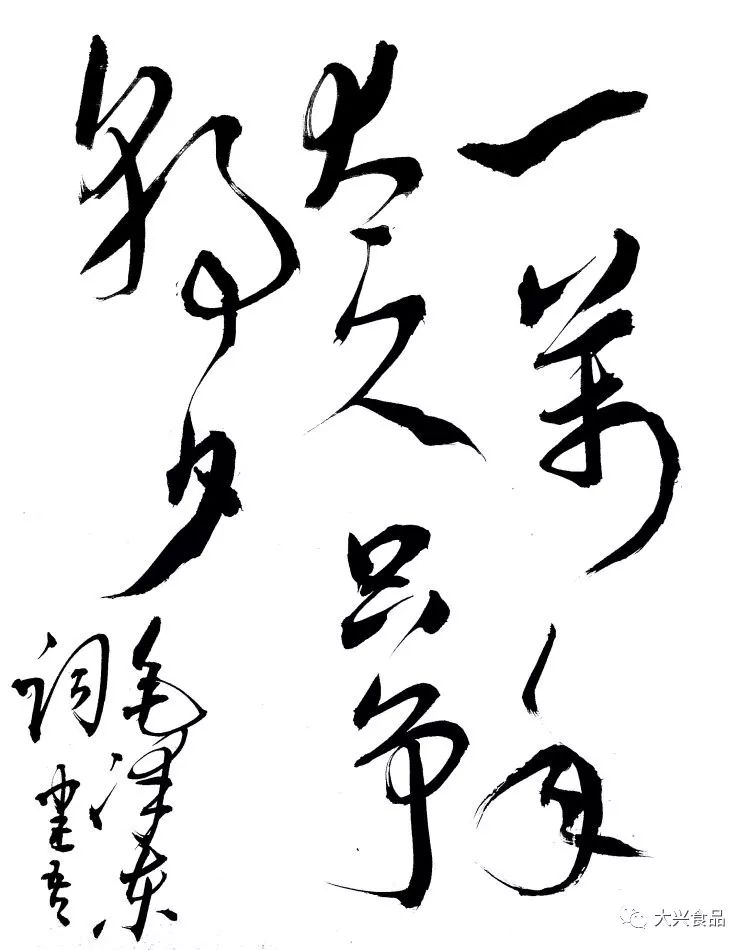 一萬年
太久只争
朝夕
毛泽东
词
大兴食品